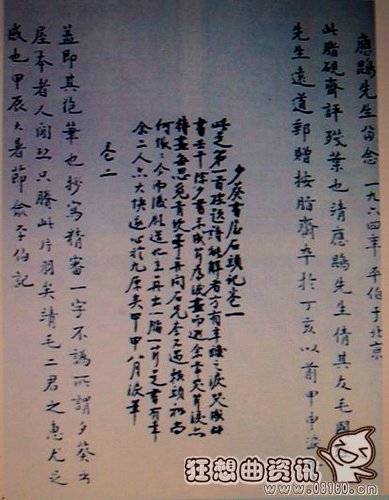 應鵾先生留念 一九六四年 平伯于北京
此脂硯齋評殘葉也靖應鵾先生倩其友毛國
先生遠道郵贈按脂齋卒於丁亥以前甲申淚
夕葵書屋石頭記卷一
此是第一首標題詩能解者方有辛酸之淚哭成此
書壬午除夕書未成芹為淚盡而逝余嘗哭芹淚亦
待盡每思覓青埂峯再問石兄余不遇獺頭和尚
何悵悵今而後願造化主再出一脂一芹是書有幸
余二人亦大快遂心於九原矣甲申八月淚筆
卷二
蓋即其絕筆也抄寫精審一字不譌所謂夕葵書
屋本者人间恐只賸此片羽矣靖毛二君之惠尤足
感也甲辰大暑節俞平伯記
狂想曲资讯
www.08160.cn